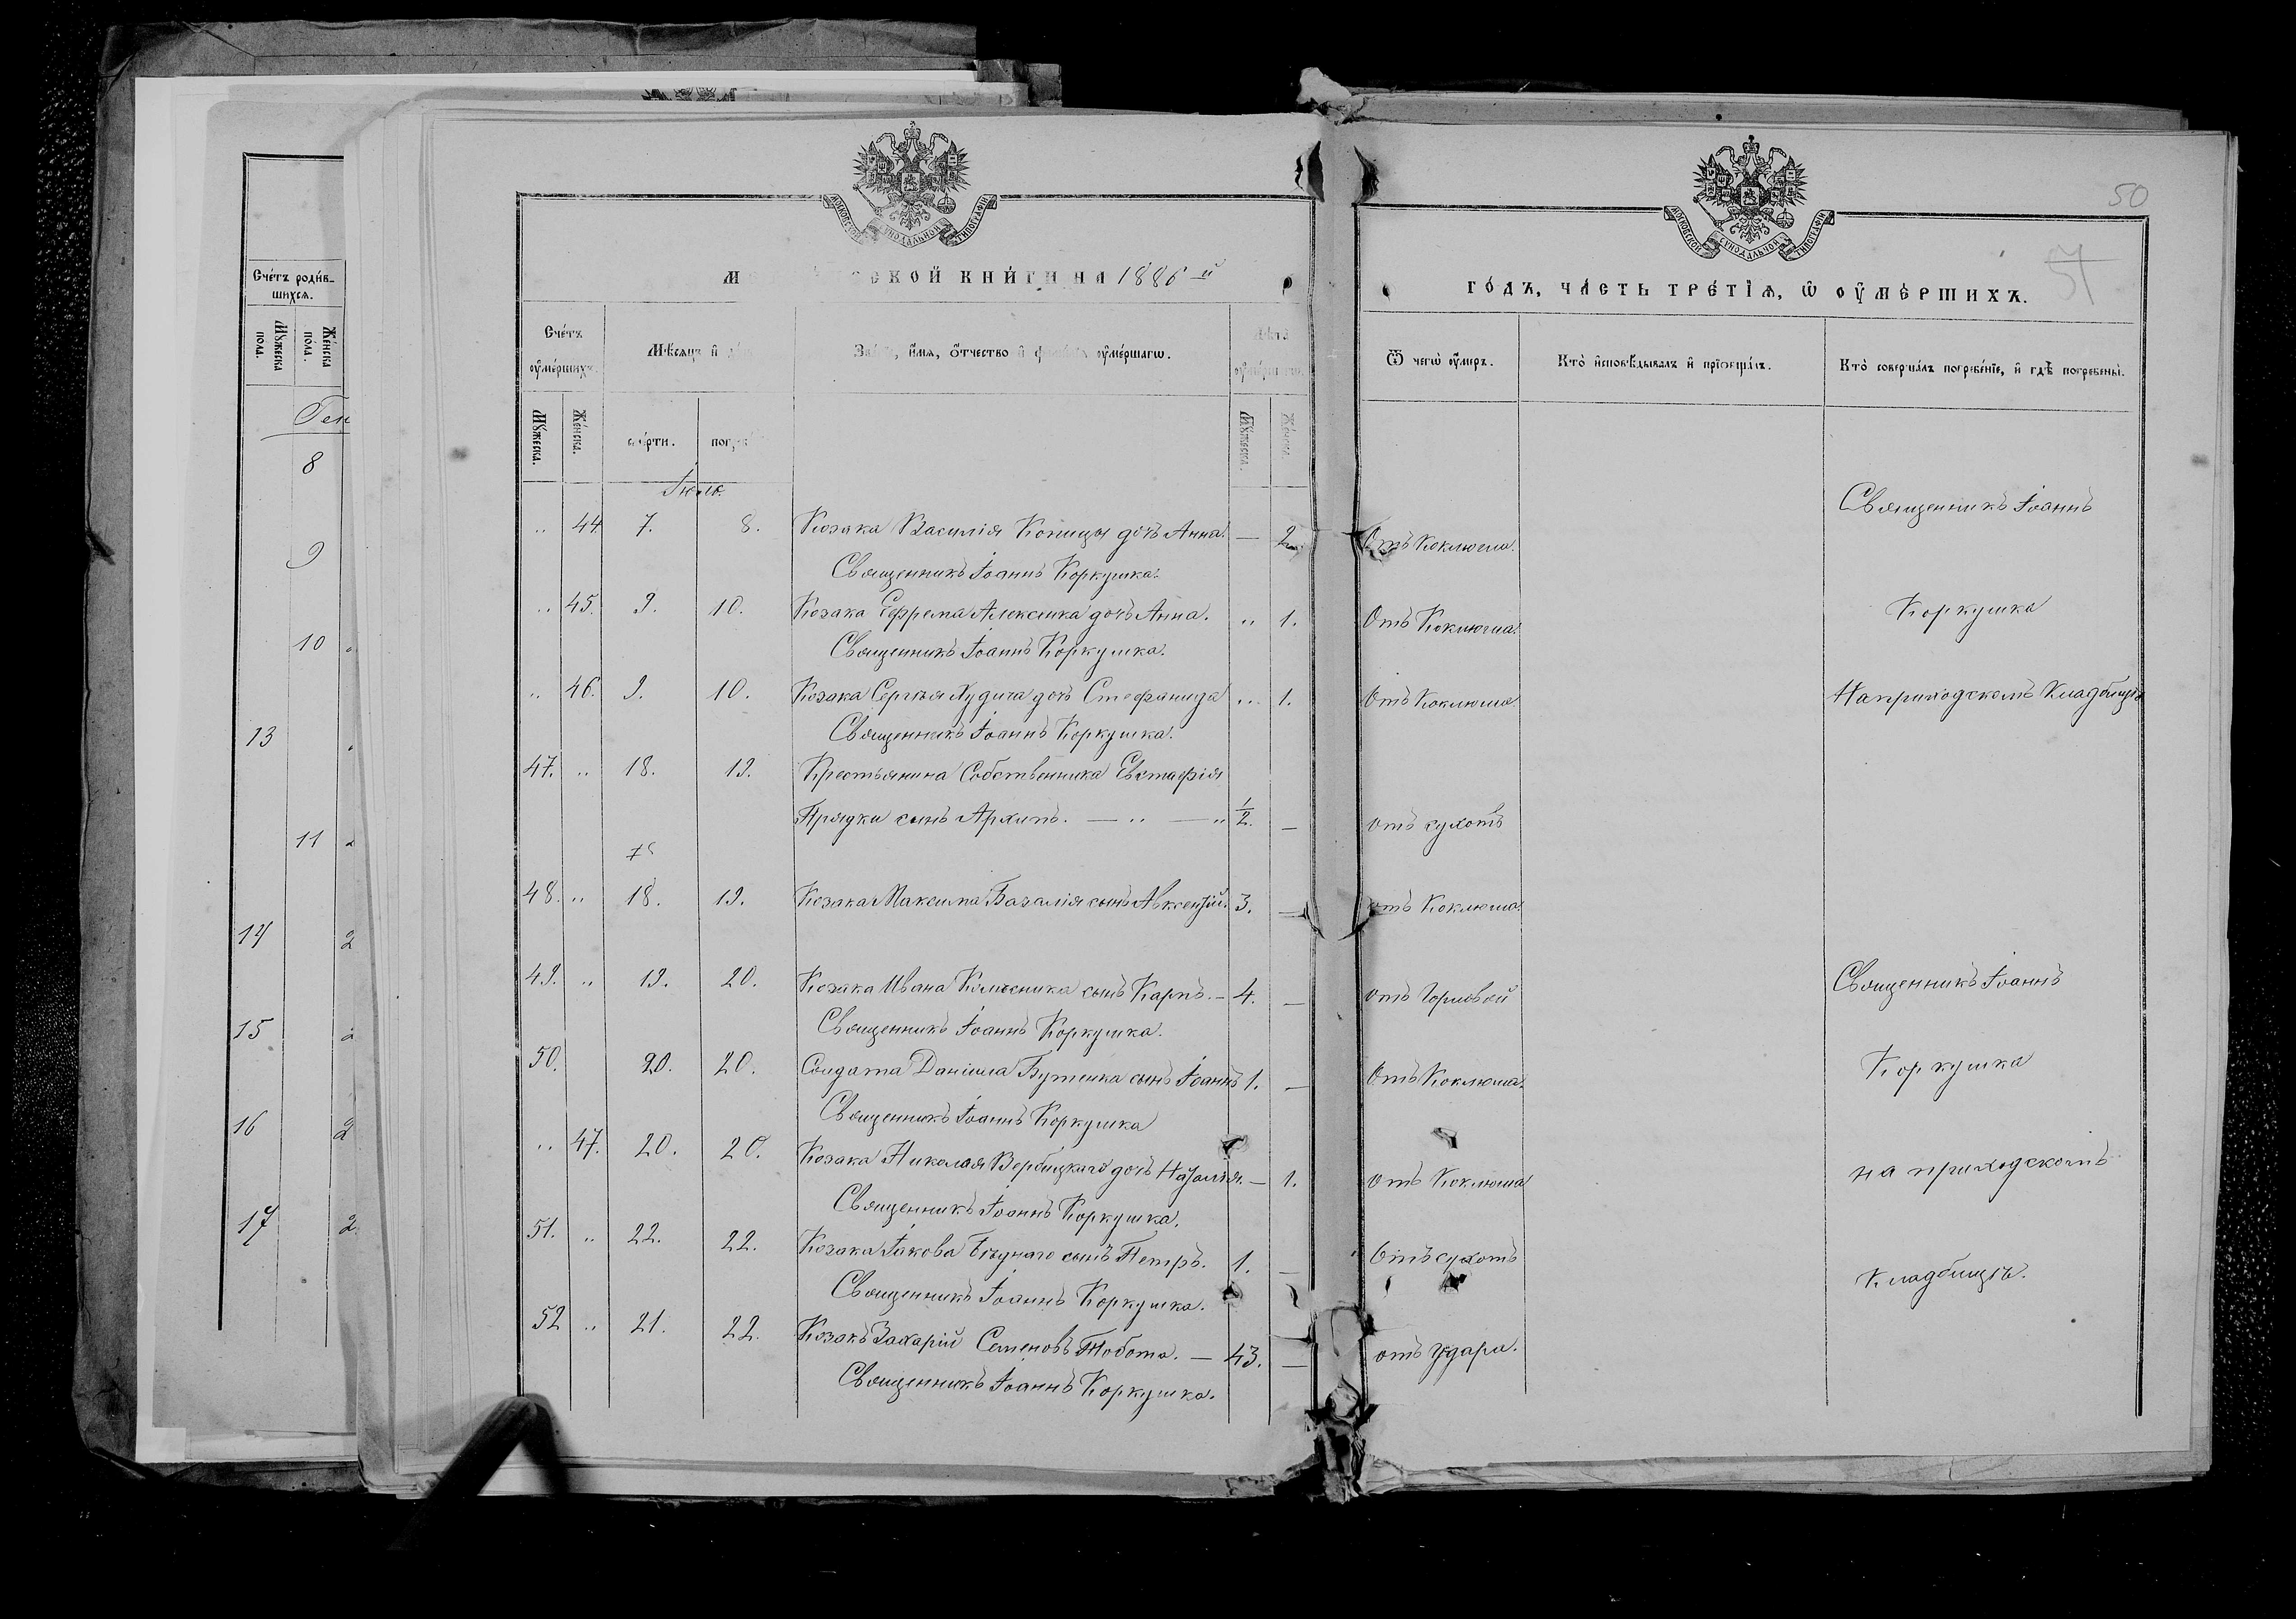 Счетъ родив-
шихся.
Мужеска пола.
Женска пола.
Ген
8
9
10
13
11
14
2
15
16
2
17
2
Московской Сѵнодальной Типографіи
ской книги на 1886-й
Счетъ умершихъ
Мѣсяцъ и
имя, отчество и умершаго.
Мужеска.
Женска.
смерти.
Мужеска.
Женска.
Іюль.
44 7. 8. Козака Василія Копицы дочь Анна. — 2
Священникъ Іоаннъ Коркушка.
45. 9. 10. Козака Ефрема Алексика дочь Анна. 1.
Священникъ Іоаннъ Коркушка.
46. 9. 10. Козака Сергѣя Худича дочь Стефанида 1.
Священникъ Іоаннъ Коркушка.
47. 18. 19. Крестьянина Собственника Евстафія
Прядки сынъ Архипъ. — „ — „ 1/2. —
48. 18. 19. Козака Максима Базалія сынъ Авксентій. 3. —
49. 19. 20. Козака Ивана сынъ Карпъ. — 4. —
Священникъ Іоаннъ Коркушка.
50. 20. 20. Солдата Даніила Бутенка сынъ Іоаннъ 1. —
Священникъ Іоаннъ Коркушка
47. 20. 20. Козака Николая Вербицкаго дочь Наталія. — 1.
Священникъ Іоаннъ Коркушка.
51. 22. 22. Козака Іакова Бѣднаго сынъ Петръ. 1. —
Священникъ Іоаннъ Коркушка.
52 21. 22. Козакъ Захарій Семеновъ Тобота. — 43. —
Священникъ Іоаннъ Коркушка.
50
Московской Сѵнодальной Типографіи
годъ, часть третія, ѡ оумершихъ.
Ѿ чегѡ оумеръ.
Кто исповѣдывалъ и пріобщалъ.
Кто совершалъ погребеніе, и гдѣ погребены.
Священникъ Іоаннъ
Отъ Коклюша.
Коркушка
Отъ Коклюша.
На приходскомъ Кладбищѣ
Отъ Коклюша.
отъ сухотъ
отъ Коклюша.
Священникъ Іоаннъ
отъ Горловой
Коркушка
Отъ Коклюша.
на приходскомъ
отъ Коклюша
Отъ сухотъ
Кладбищѣ.
отъ удара.